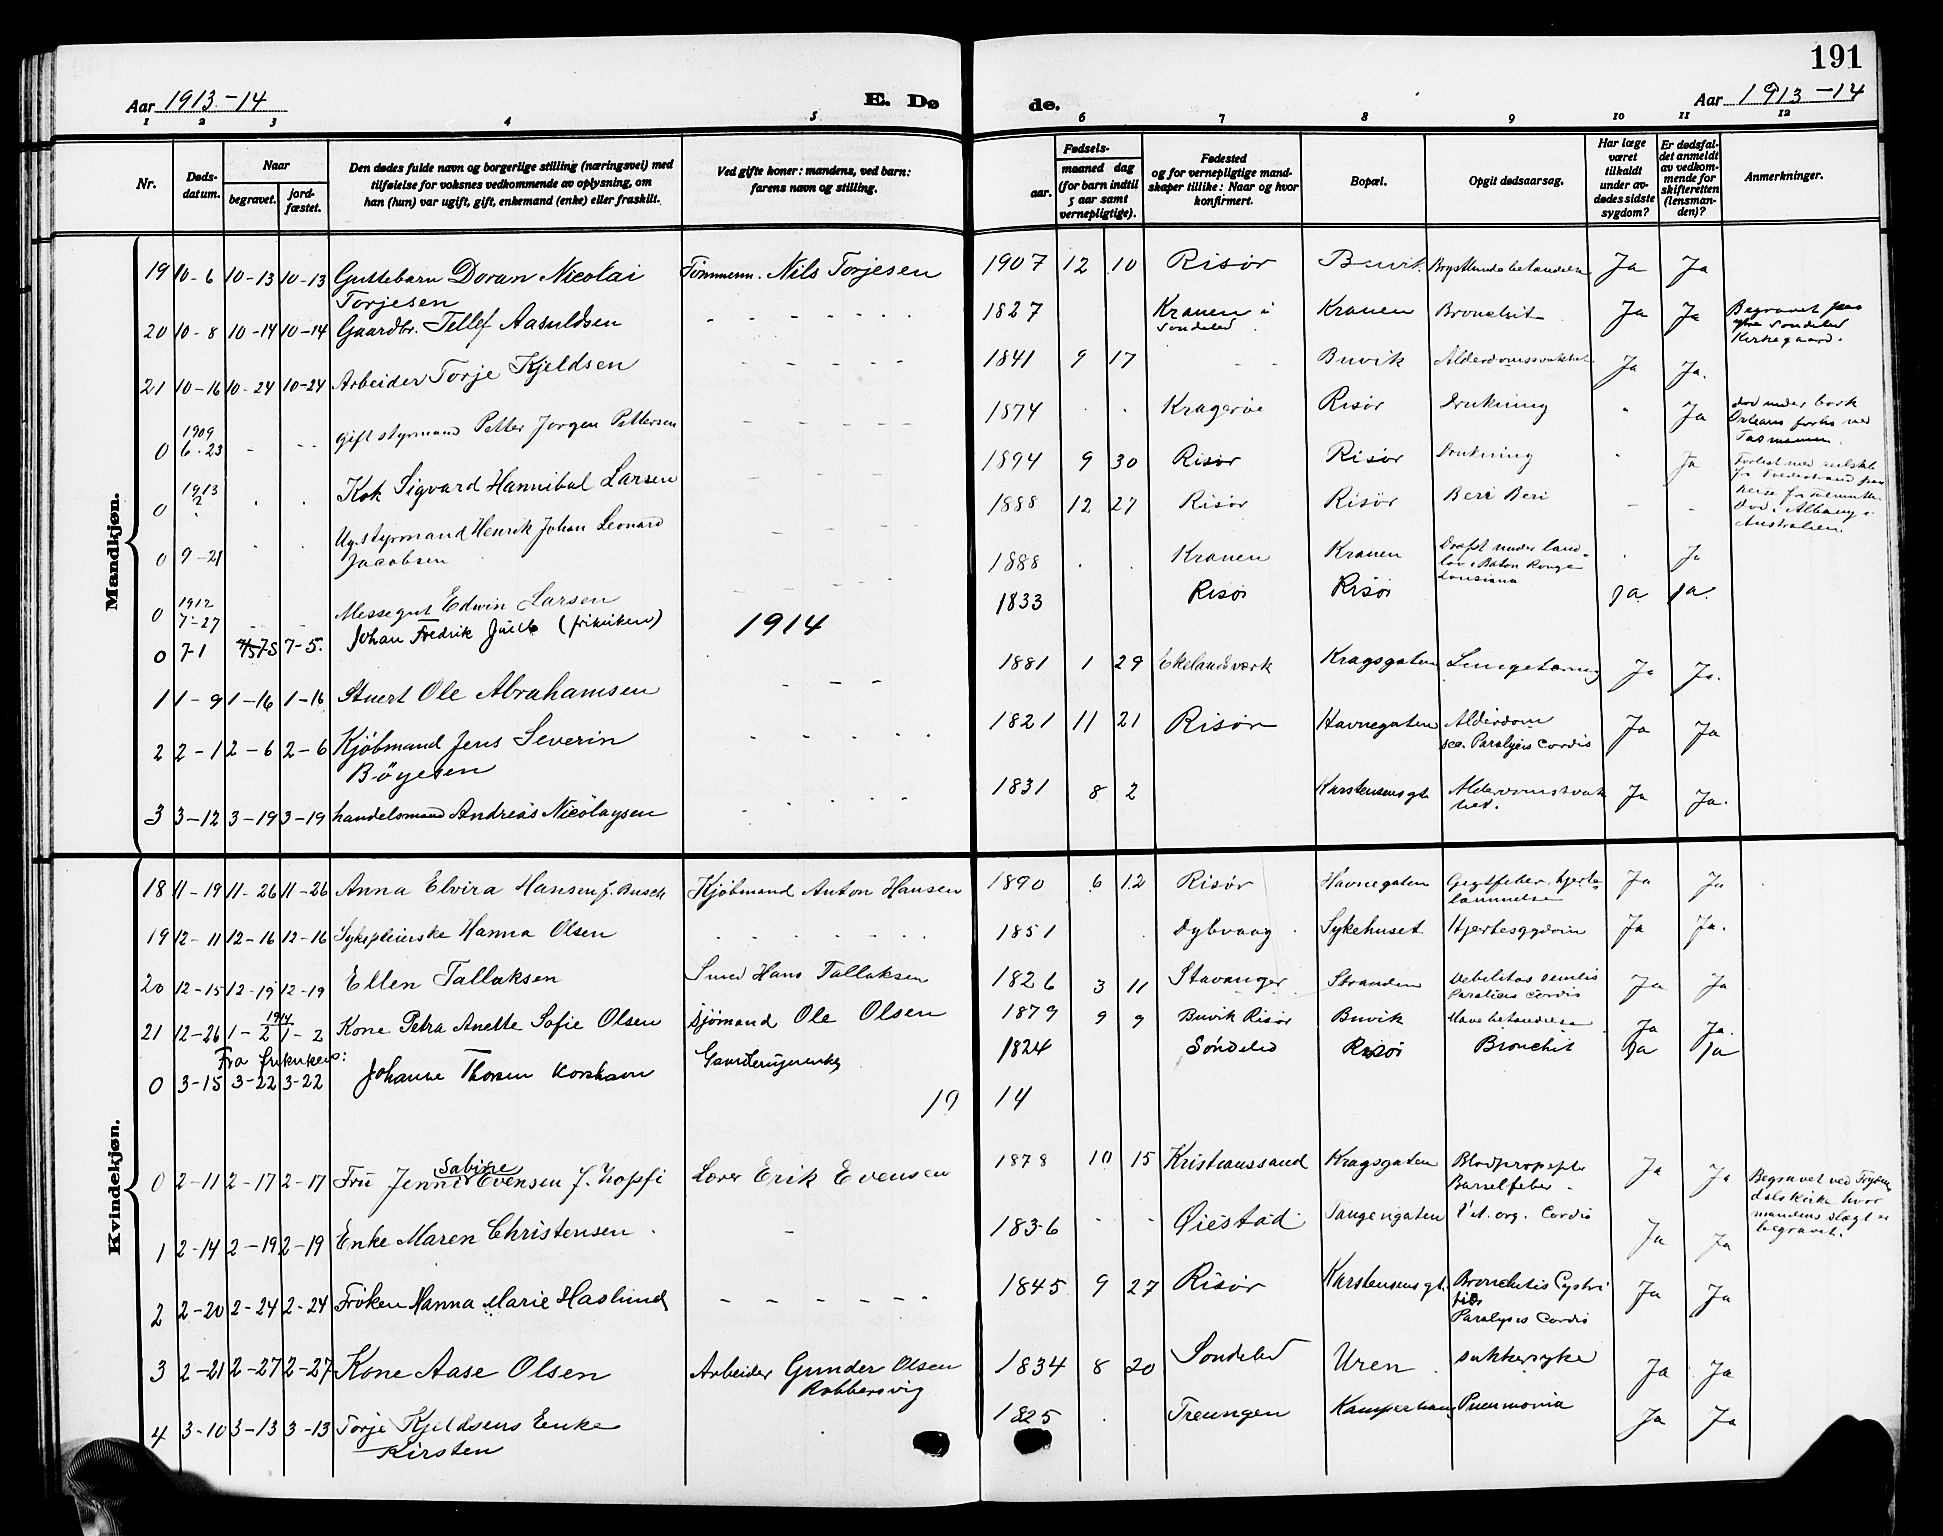 191
Aar 1913-14 E. Dø de. Aar 1913-14
1 2 3 4 5 6 7 8 9 10 11 12
Nr.
Døds-
datum.
Naar
begravet.
jord-
fæstet.
Den dødes fulde navn og borgerlige stilling (næringsvei) med
tilføielse for voksnes vedkommende av oplysning, om
han (hun) var ugift, gift, enkemand (enke) eller fraskilt.
Ved gifte koner: mandens, ved barn:
farens navn og stilling.
Fødsels-
aar.
maaned dag
(for barn indtil
5 aar samt
vernepligtige).
Fødested
og for vernepligtige mand-
skaper tillike: Naar og hvor
konfirmert.
Bopæl.
Opgit dødsaarsag.
Har læge
været
tilkaldt
under av-
dødes sidste
sygdom?
Er dødsfal-
det anmeldt
av vedkom-
mende for
skifteretten
(lensman-
den)?
Anmerkninger.
Mandkjøn.
19 10-6 10-13 10-13 Guttebarn Doran Nicolai Torjesen Tømmerm. Nils Torjesen 1907 12 10 Risør Buvik Ja Ja
20 10-8 10-14 10-14 Gaardbr. Tellef Aasuldsen - - - - - - 1827 Kranen i Søndeled Kranen Bronchit Ja Ja Begravet paa Søndeled Kirkegaard.
21 10-16 10-24 10-24 Arbeider Torje Kjeldsen - - - - 1841 9 17 - - Buvik Alderdomssvakhet Ja Ja.
0 1909 6-23 - - - gift styrmand Petter Jørgen Pettersen - - - - 1874 . . Kragerøe Risør Drukning " Ja død under bark Orleans forlis ved Tasmanien.
0 1913 2 . . Kok Sigvard Hannibal Larsen - - - 1894 9 30 Risør Risør Drukning " Ja Forlist med
0 9-21 . . Ug. styrmand Henrik Johan Leonard Jacobsen - - - 1888 12 27 Risør Risør Beri Beri - - død i Albany i Australien.
0 1912 7-27 - - Messegut Edwin Larsen - - - 1888 . . Kranen Kranen Dræpt under land- lov i Baton Rouge Louisiana . Ja
0 7-1 7-5 7-5. Johan Fredrik Juell (frikirken) 1833 Risør Risør Ja Ja.
1914
1 1-9 1-16 1-16 Stuert Ole Abrahamsen - - - 1881 1 29 Ekelandsverk Kragsgaten Lungetæring Ja Ja.
2 2-1 2-6 2-6 Kjøbmand Jens Severin Bøyesen - - - - 1821 11 21 Risør Havnegaten Alderdom Paralysis Cordis Ja Ja
3 3-12 3-19 3-19 handelsmand Andreas Nicolaysen - - - - 1831 8 2 Karstensensgt. Alderdomssvakhed. Ja Ja.
Kvindekjøn.
18 11-19 11-26 11-26 Anna Elvira Hansen f. Busch Kjøbmand Anton Hansen 1890 6 12 Risør Havnegaten Gigtfeber, hjerte- lammelse Ja Ja
19 12-11 12-16 12-16 Sykepleierske Hanna Olsen - - - - - - 1851 Dybvaag Sykehuset Hjertesygdom Ja Ja.
20 12-15 12-19 12-19 Ellen Tallaksen Smed Hans Tallaksen 1826 3 11 Stavanger Stranden Debilitas senilis Paralisis Cordis Ja Ja
21 12-26 1914 1-2 1-2 Kone Petra Anette Sofie Olsen Sjømand Ole Olsen 1879 9 9 Buvik Risør Buvik Mavebetændelse Ja Ja.
Fra frikirken:
0 3-15 3-22 3-22 Johanne Thorsen 1824 Søndeled Risør Bronchit Ja Ja
19 14
0 2-11 2-17 2-17 Fru Jenni Sabine Evensen f. Zopfi Lærer Erik Evensen 1878 10 15 Kristianssand Kragsgaten Blodpropeple Barselfeber - Ja Ja Begravet ved hvor mandens slægt er begravet.
1 2-14 2-19 2-19 Enke Maren Christensen - - 1836 - - Øiestad Tangengaten Vit. org. Cordis Ja Ja
2 2-20 2-24 2-24 Frøken Hanna Marie Haslund - - - - - - 1845 9 27 Risør Karstensensgt. Bronchitis Cystitis Paralysis Cordis Ja Ja
3 2-21 2-27 2-27 Kone Aase Olsen Arbeider Gunder Olsen Robbersvig 1834 8 20 Søndeled Uren Sukkersyke Ja Ja
4 3-10 3-13 3-13 Torje Kjeldsens Enke Kirsten 1825 . Treungen Kamperhaug Pneumonia Ja Ja